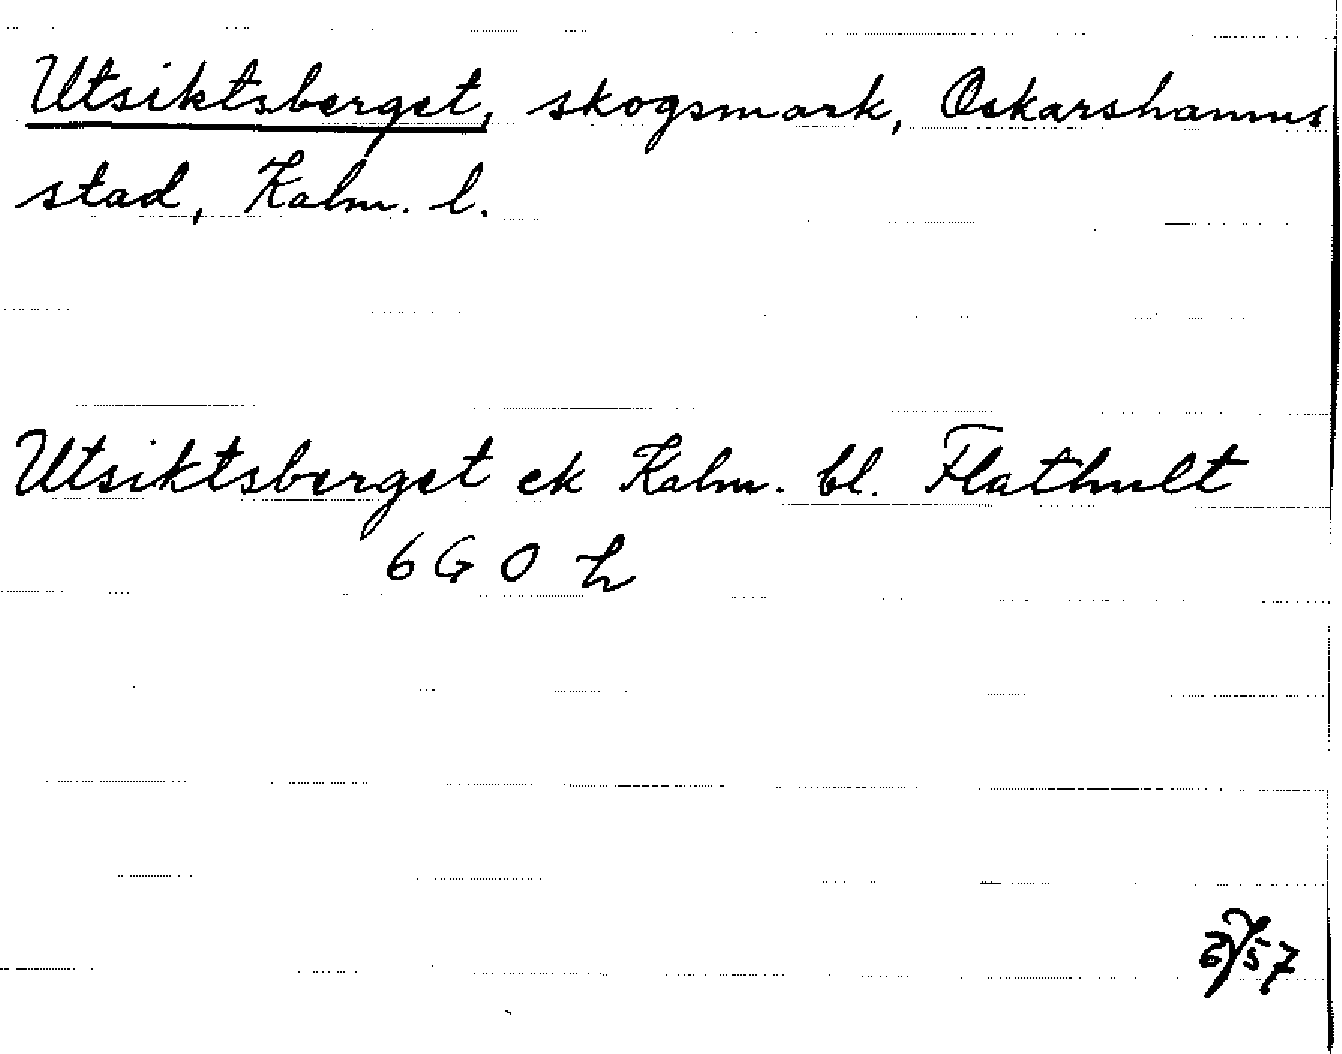 Utsiktsberget, skogsmark, Oskarshamns
stad, Kalm. l.
Utsiktsberget ek Kalm. bl. Flathult
6 G 0 h